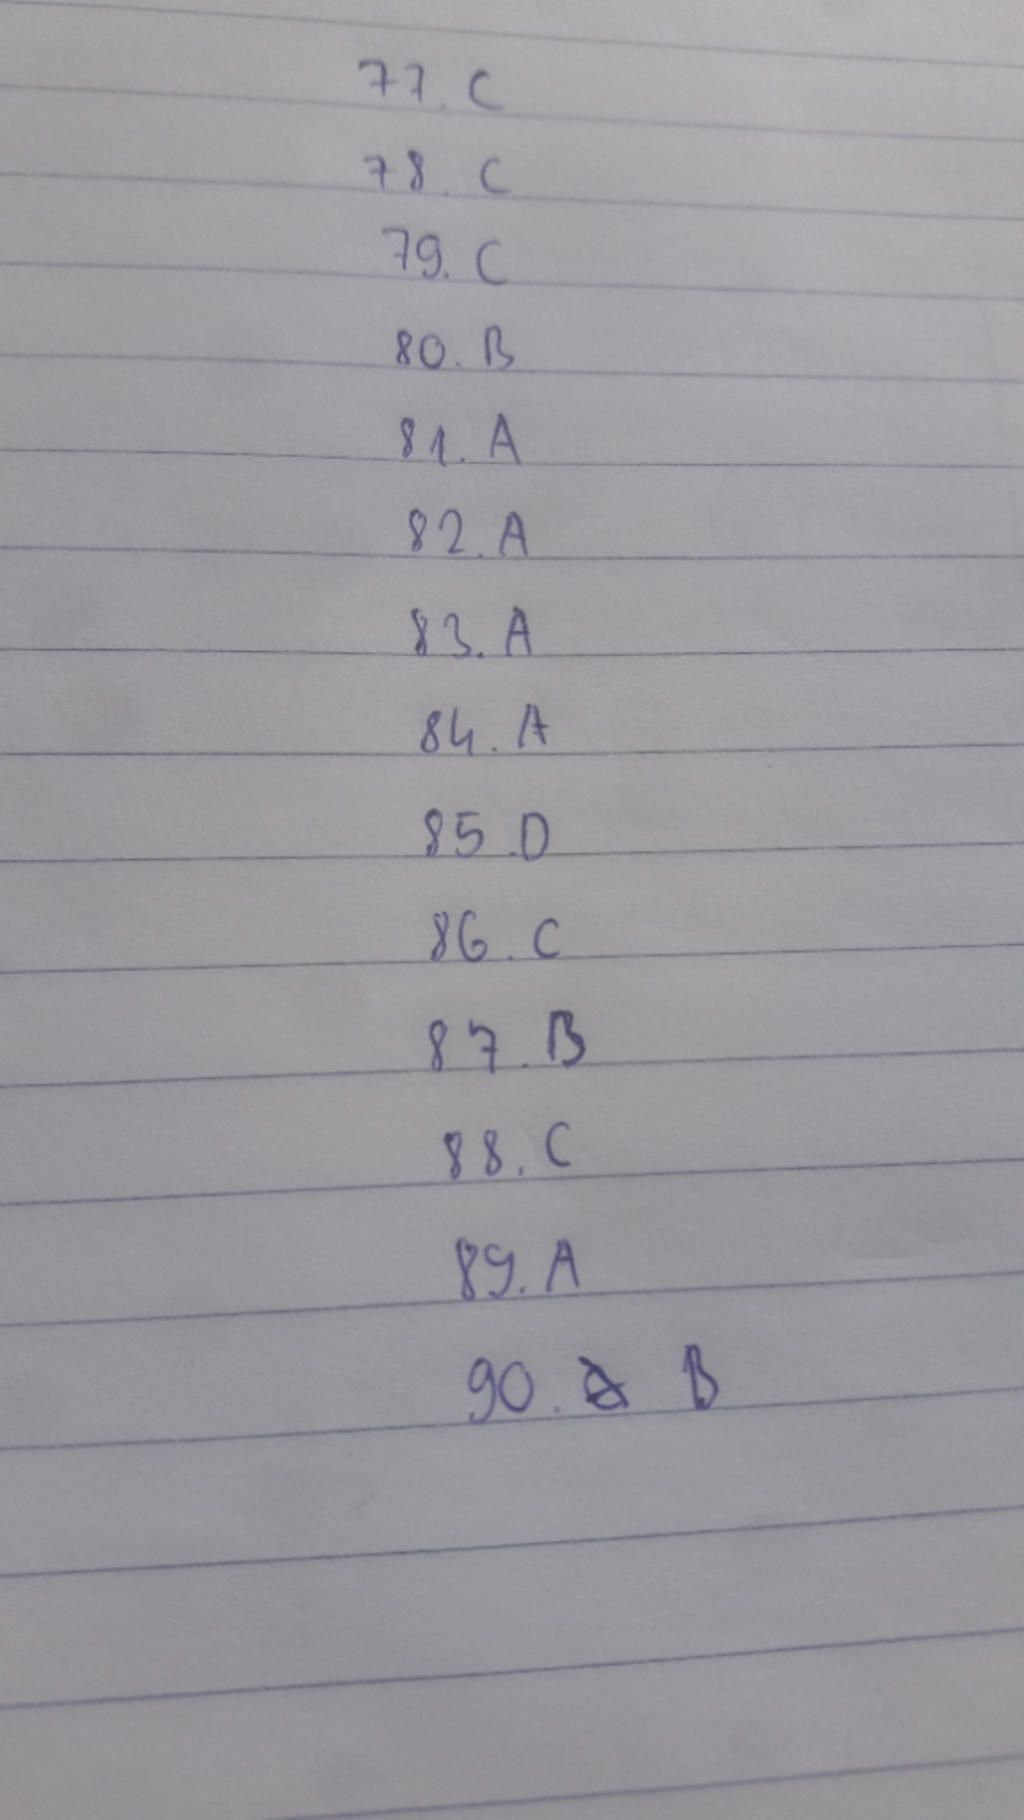 77. C
78. C
79. C
80. B
81. A
82. A
83. A
84. A
85. D
86. C
87. B
88. C
89. A
90. B